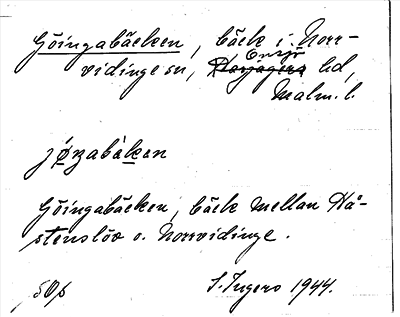 Göingabäcken, bäck i Norr-
vidinge sn, Onsjö hd,
Malm. l.
jøzabäken
Göingabäcken, bäck mellan Hå-
stenslöv o. Norrvidinge.
S. Ingers 1944.